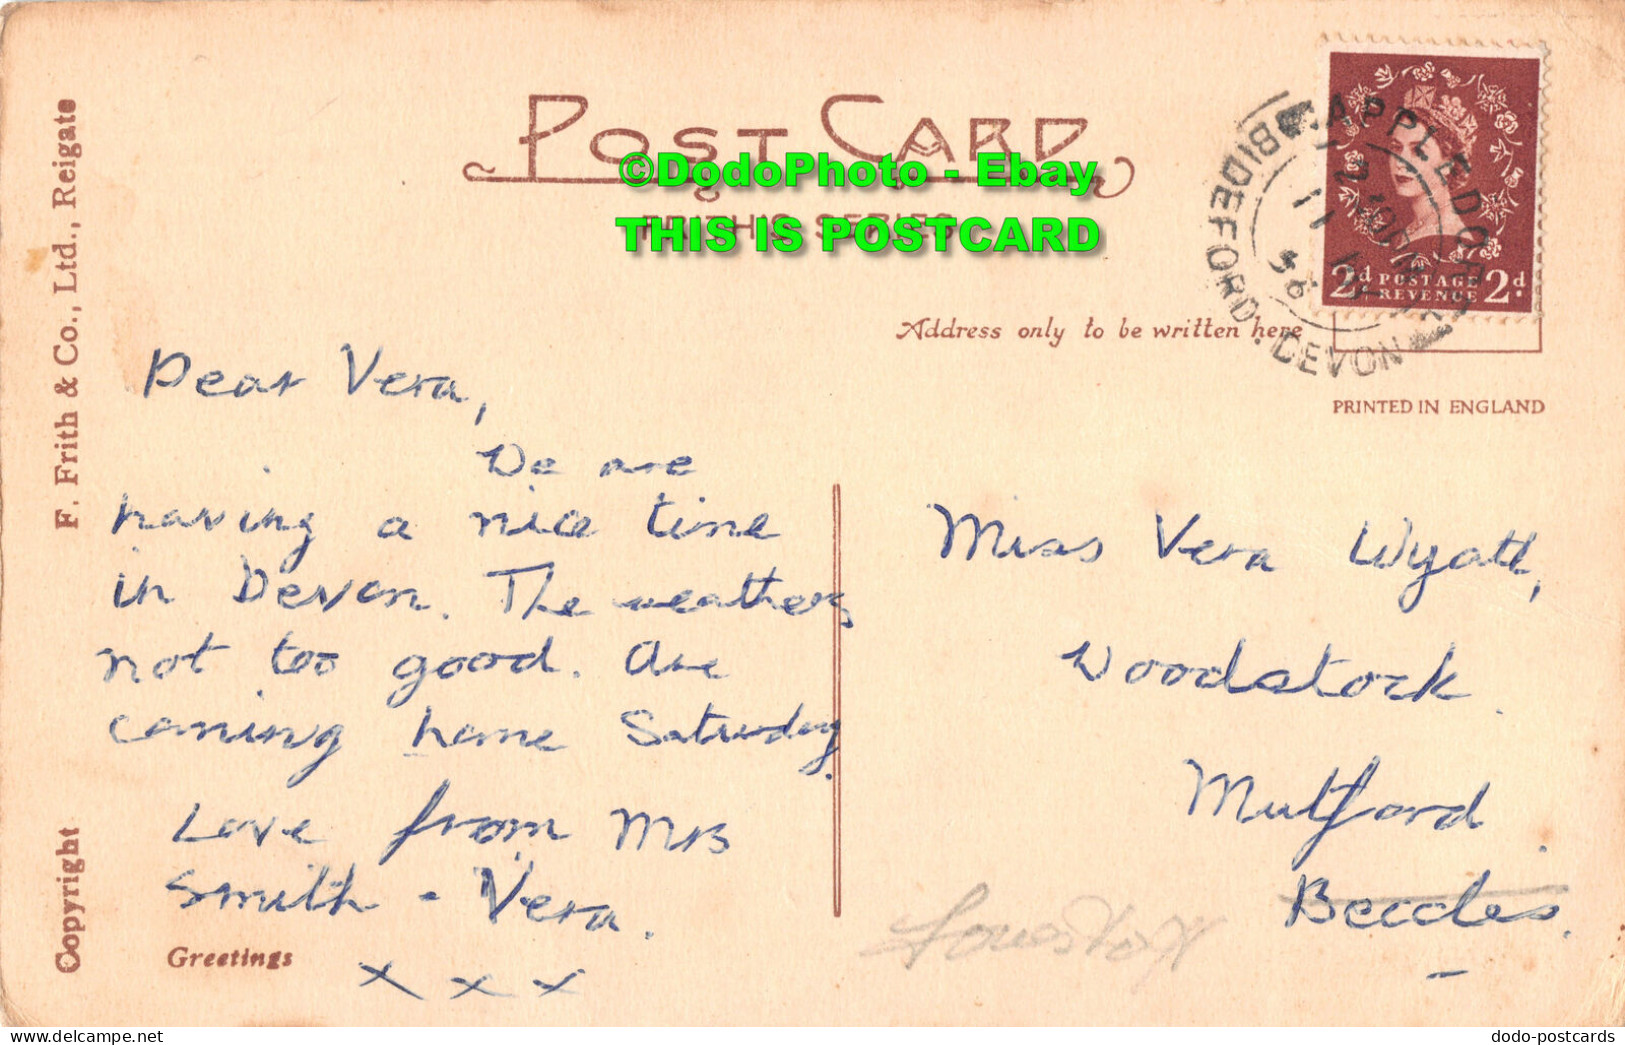 POST CARD
©DodoPhoto - Ebay
FRITH'S SERIES
THIS IS POSTCARD
APPLEDORE
BIDEFORD. DEVON
2d POSTAGE 2d.
REVENUE
Address only to be written here
PRINTED IN ENGLAND
F. Frith & Co., Ltd., Reigate
Copyright
Dear Vera,
We are
having a nice time
in Devon. The weathers
not too good. Are
coming home Saturday.
Love from Mrs
Smith - Vera.
x x x
Greetings
Miss Vera Wyatt,
Woodstock.
Mutford
Beccles.
Lowestoft
dodo-postcards